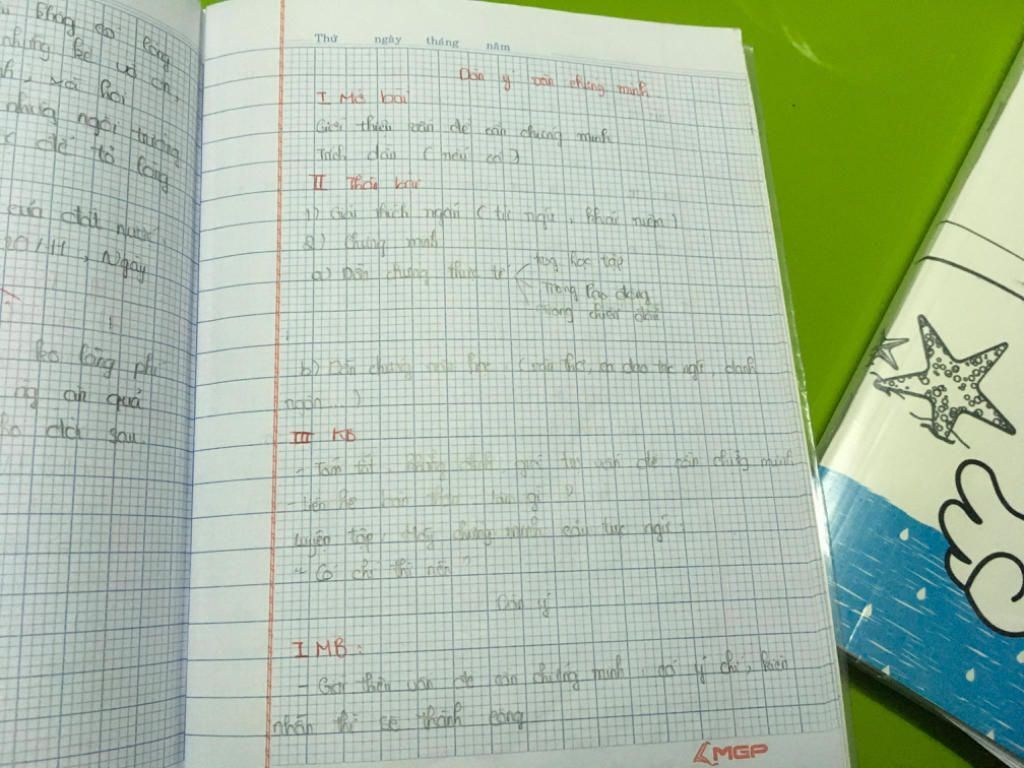 không có lòng
những kẻ vô ơn,
xã hội
những ngôi trường
để tỏ lòng
của đất nước.
20/11, ngày
!
lòng phí
ăn quả
đời sau.
Thứ ngày tháng năm
Dàn ý văn chứng minh
I Mở bài
Giới thiệu vấn đề cần chứng minh
Trích dẫn (nếu có)
II Thân bài
1) Giải thích ngắn (tục ngữ, khái niệm)
2) Chứng minh
a) Dẫn chứng thực tế
trong học tập
trong lao động
trong chiến đấu
b) Dẫn chứng văn học (văn thơ, ca dao tục ngữ, danh
ngôn ...)
III KB
- Tóm tắt, khẳng định giá trị vấn đề cần chứng minh
- Liên hệ bản thân làm gì ?
Luyện tập: Hãy chứng minh câu tục ngữ:
"Có chí thì nên"
Dàn ý
I MB:
- Giới thiệu vấn đề cần chứng minh: có ý chí, kiên
nhẫn thì sẽ thành công
MGP